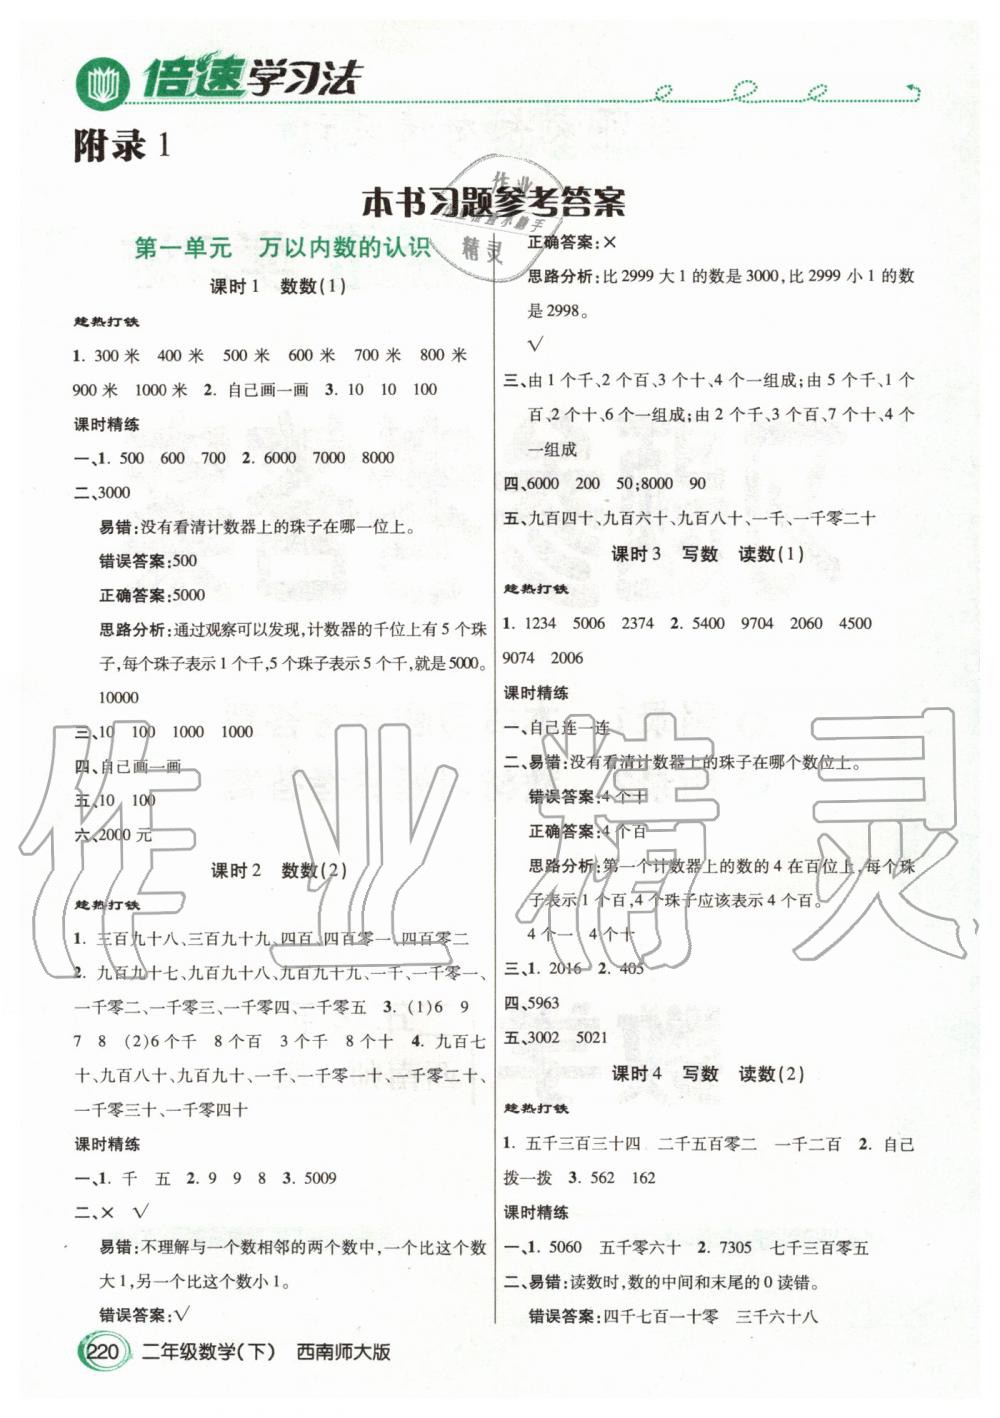 倍速学习法
附录1
本书习题参考答案
第一单元 万以内数的认识
课时1 数数(1)
趁热打铁
1. 300米 400米 500米 600米 700米 800米
900米 1000米 2. 自己画一画 3. 10 10 100
课时精练
一、1. 500 600 700 2. 6000 7000 8000
二、3000
易错:没有看清计数器上的珠子在哪一位上。
错误答案:500
正确答案:5000
思路分析:通过观察可以发现,计数器的千位上有5个珠
子,每个珠子表示1个千,5个珠子表示5个千,就是5000。
10000
三、10 100 1000 1000
四、自己画一画
五、10 100
六、2000元
课时2 数数(2)
趁热打铁
1. 三百九十八、三百九十九、四百、四百零一、四百零二
2. 九百九十七、九百九十八、九百九十九、一千、一千零一、
一千零二、一千零三、一千零四、一千零五 3. (1)6 9
7 8 (2)6个千 8个百 3个千 8个十 4. 九百七
十、九百八十、九百九十、一千、一千零一十、一千零二十、
一千零三十、一千零四十
课时精练
一、1. 千 五 2. 9 9 8 3. 5009
二、× √
易错:不理解与一个数相邻的两个数中,一个比这个数
大1,另一个比这个数小1。
错误答案:√
正确答案:×
思路分析:比2999大1的数是3000,比2999小1的数
是2998。
√
三、由1个千、2个百、3个十、4个一组成;由5个千、1个
百、2个十、6个一组成;由2个千、3个百、7个十、4个
一组成
四、6000 200 50;8000 90
五、九百四十、九百六十、九百八十、一千、一千零二十
课时3 写数 读数(1)
趁热打铁
1. 1234 5006 2374 2. 5400 9704 2060 4500
9074 2006
课时精练
一、自己连一连
二、易错:没有看清计数器上的珠子在哪个数位上。
错误答案:4个十
正确答案:4个百
思路分析:第一个计数器上的数的4在百位上,每个珠
子表示1个百,4个珠子应该表示4个百。
4个一 4个十
三、1. 2016 2. 405
四、5963
五、3002 5021
课时4 写数 读数(2)
趁热打铁
1. 五千三百三十四 二千五百零二 一千二百 2. 自己
拨一拨 3. 562 162
课时精练
一、1. 5060 五千零六十 2. 7305 七千三百零五
二、易错:读数时,数的中间和末尾的0读错。
错误答案:四千七百一十零 三千六十八
220 二年级数学(下) 西南师大版
作业精灵
作业
精灵